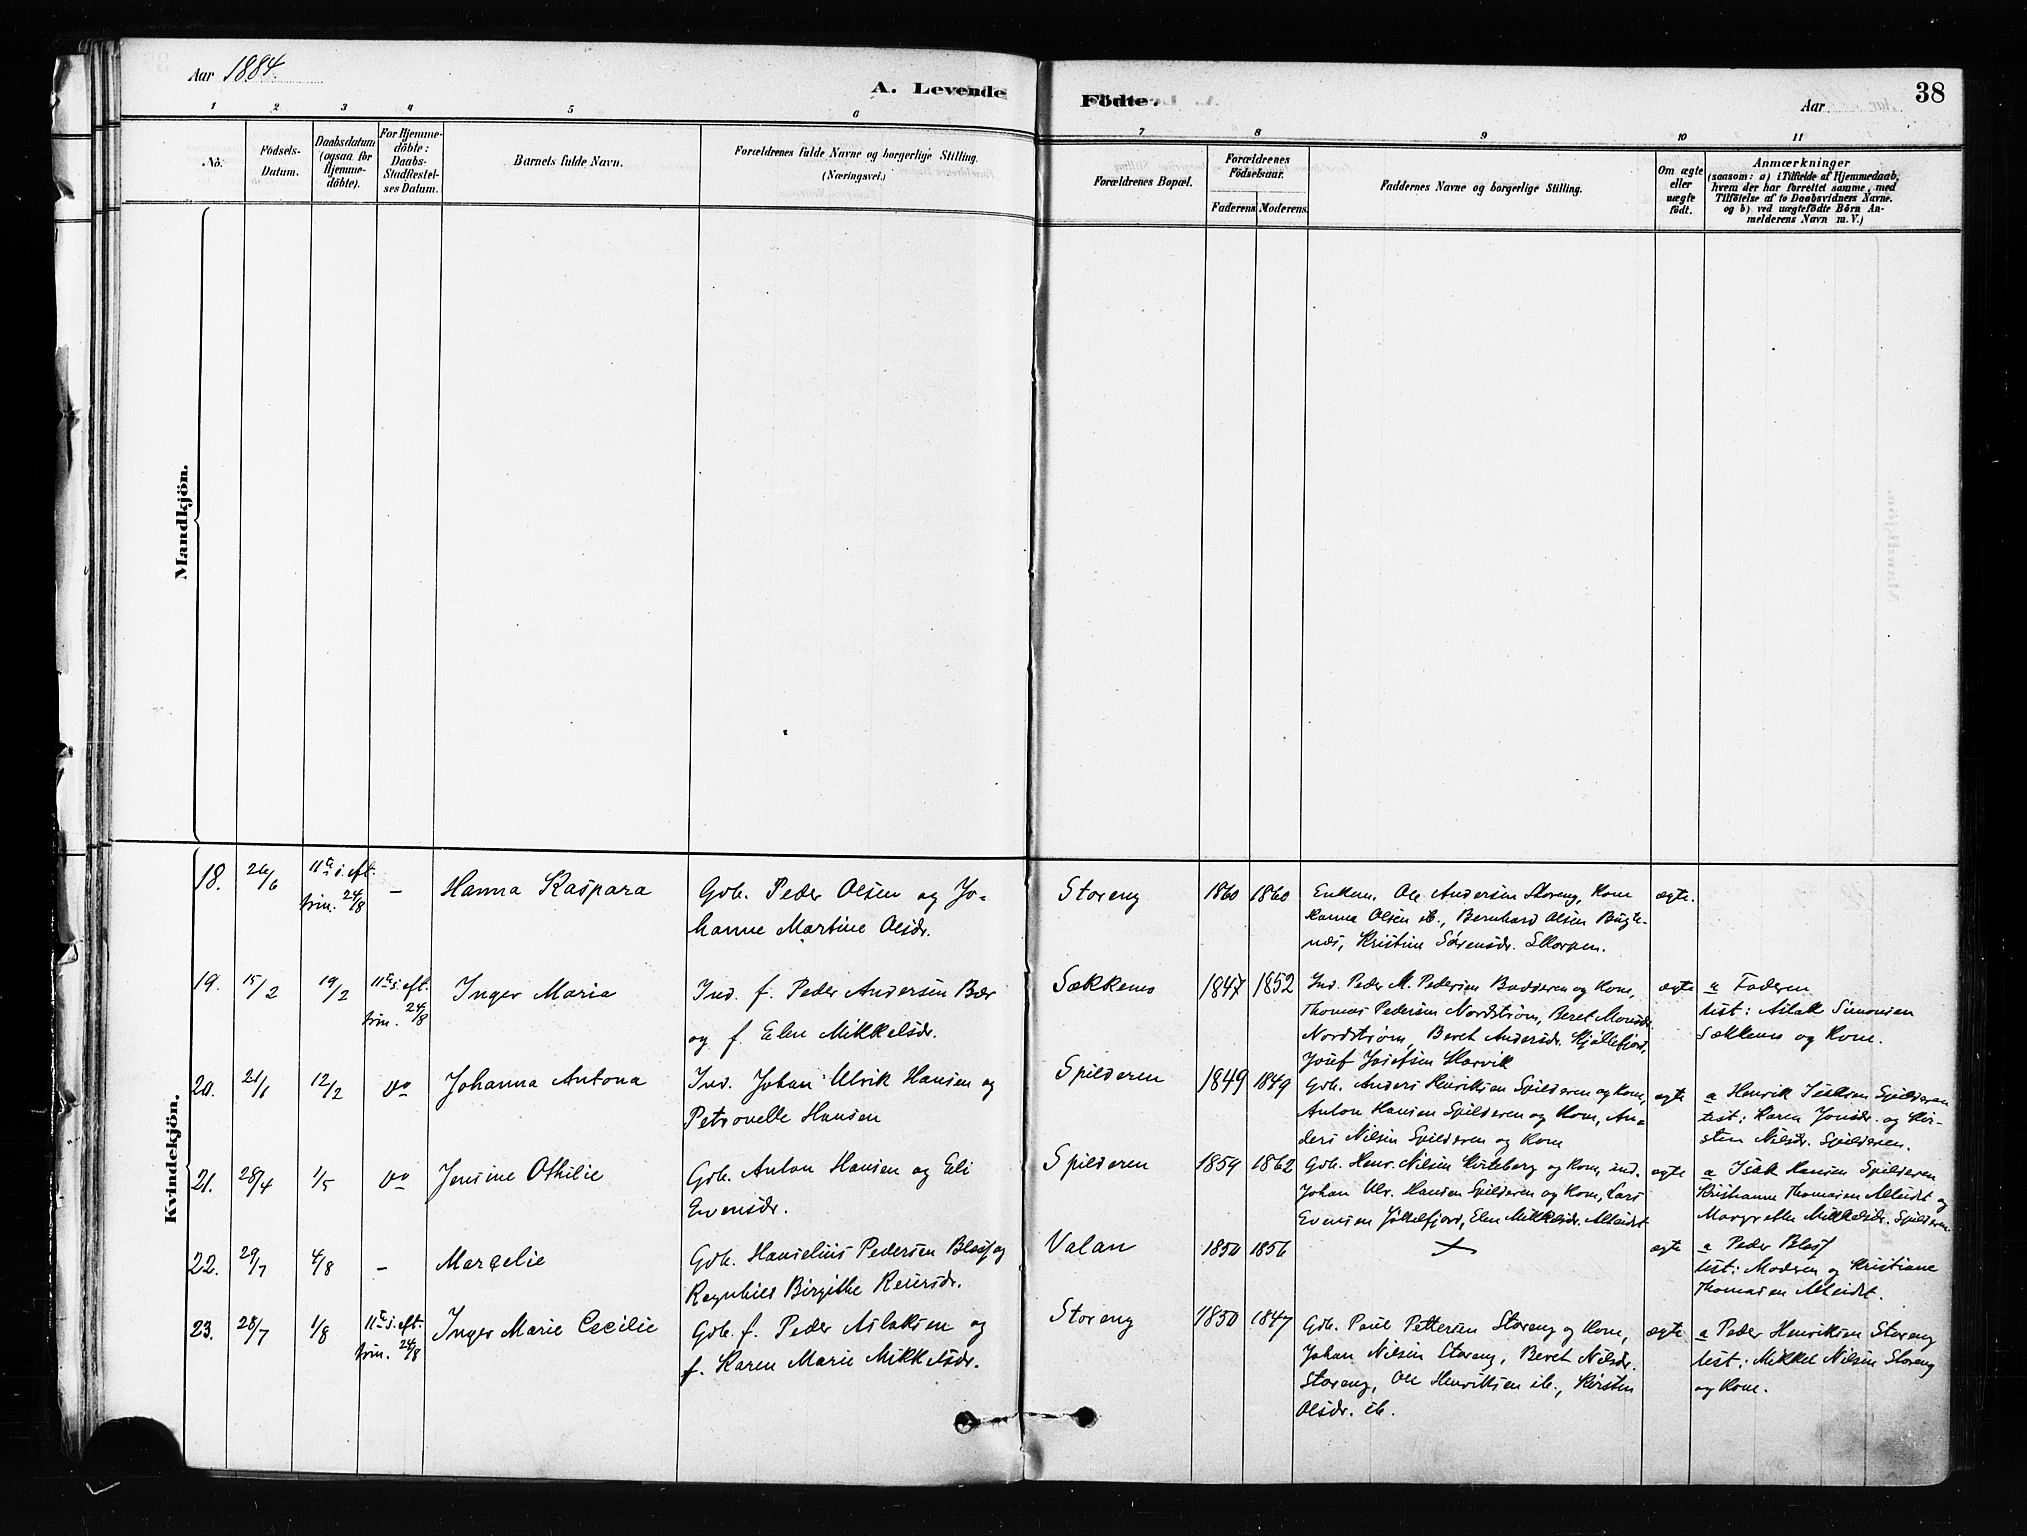 Aar 1884.
A. Levende Födte.
Aar
38
1 2 3 4 5 6 7 8 9 10 11
No.
Födsels-
Datum.
Daabsdatum
(ogsaa for
Hjemme-
döbte).
For Hjemme-
döbte:
Daabs-
Stadfæstel-
ses Datum.
Barnets fulde Navn.
Forældrenes fulde Navne og borgerlige Stilling.
(Næringsvei.)
Forældrenes Bopæl.
Forældrenes
Födselsaar.
Faderens. Moderens.
Faddernes Navne og borgerlige Stilling.
Om ægte
eller
uægte
födt.
Anmærkninger
(saasom: a) i Tilfælde af Hjemmedaab,
hvem der har forrettet samme, med
Tilföielse af to Daabsvidners Navne.
og b) ved uægtefödte Börn An-
melderens Navn m. V.)
Mandkjön.
Kvindekjön.
18. 26/6 11te s. eft.
trin. 24/8 –
Hanna Kaspara
Gdb. Peder Olsen og Jo-
hanne Martine Olsdr.
Storeng 1860 1860
Enkem. Ole Andersen Storeng, Kone
Hanna Olsen ib., Bernhard Olsen Bugte-
næs, Kristine Sørensdr. Skorpen.
ægte.
19. 15/2 19/2 11te s. eft.
trin. 24/8
Inger Maria
Ind. f. Peder Andersen Bær
og f. Elen Mikkelsdr.
Sækkemo 1847 1852
Ind. Peder M. Pedersen Badderen og Kone,
Thomas Pedersen Nordstrøm, Beret Monsdr.
Nordstrøm, Beret Andersdr. Kjøllefjord,
Josef Josefsen Skarvik
ægte
a Faderen
test: Aslak Simonsen
Sækkemo og Kone.
20. 21/1 12/2 do
Johanna Antona
Ind. Johan Ulrik Hansen og
Petronelle Hansen
Spilderen 1849 1849
Gdb. Anders Henriksen Spilderen og Kone,
Anton Hansen Spilderen og Kone, An-
ders Nilsen Spilderen og Kone
ægte
a Henrik Isaksen Spilderen
test: Karen Jonsdr. og Kir-
sten Nilsdr. Spilderen.
21. 28/4 1/5 do
Jensine Othilie
Gdb. Anton Hansen og Eli
Evensdr.
Spilderen 1859 1862
Gdb. Henr. Nilsen Kirkeberg og Kone, ind.
Johan Ulr. Hansen Spilderen og Kone, Lars
Evensen Jøkelfjord, Elen Mikkelsdr. Alteidet
ægte
a Isak Hansen Spilderen
Kristianne Thomasen Alteidet og
Margrethe Mikkelsdr. Spilderen
22. 29/7 4/8 –
Marcelie
Gdb. Hanselius Pedersen Blasf og
Ragnhild Birgithe Reiersdr.
Valan 1850 1856 ×
ægte
a Peder Blasf
test: Modren og Kristiane
Thomasen Alteidet.
23. 28/7 1/8 11te s. eft.
trin. 24/8
Inger Marie Cecilie
Gdb. f. Peder Aslaksen og
f. Karen Marie Mikkelsdr.
Storeng 1850 1847
Gdb. Paul Pettersen Storeng og Kone,
Johan Nilsen Storeng, Beret Nilsdr.
Storeng, Ole Henriksen ib., Kirsten
Olsdr. ib.
ægte
a Peder Henriksen Storeng
test: Mikkel Nilsen Storeng
og Kone.